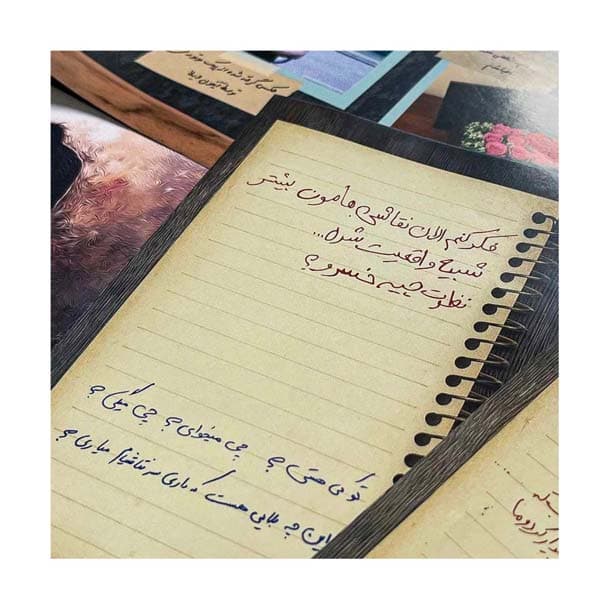 فکر کنم الان نقاشی هامون بیشتر
شبیح واقعیت شدن...
نظرت چیه خسرو؟
تو کی هستی؟ چی میخوای؟ چی میگی؟
این چه بلایی هست که داری سر نقاشیام میاری؟
توسط آیتون